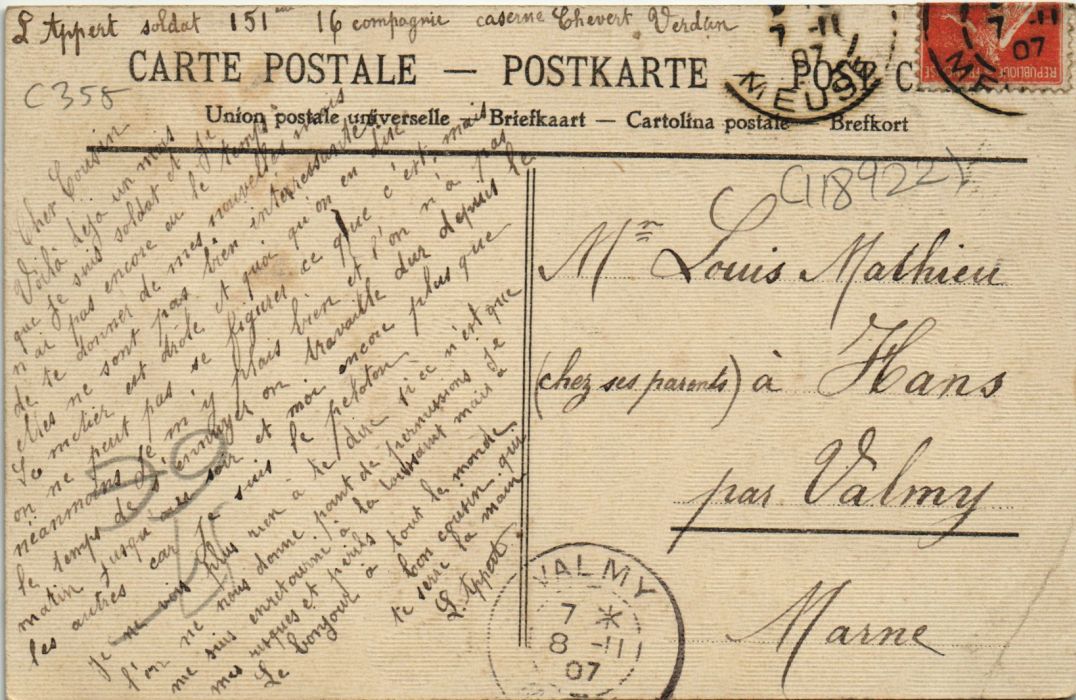 L Appert soldat 151ème 16 compagnie caserne Chevert Verdun
CARTE POSTALE — POSTKARTE POST C
C358
Union postale universelle — Briefkaart — Cartolina postale — Brefkort
7 -11
07
MEUSE
7 -11
07
ME
REPUBLIQUE FRANÇAISE
C118922
Cher Cousin
Voilà déjà un mois
que je suis soldat et je
n'ai pas encore eu le temps
de te donner de mes nouvelles mais
elles ne sont pas bien intéressantes
Le métier est drôle et quoi qu'on en dise
on ne peut pas se figurer ce que c'est, mais
néanmoins je m'y plais bien et l'on n'a pas
le temps de s'ennuyer on travaille dur depuis le
matin jusqu'au soir et moi encore plus que
les autres car je suis le peloton
Je ne vois plus rien à te dire si ce n'est que
l'on ne nous donne point de permissions je
me suis enretourné à la toussaint mais à
mes risques et périls
Le bonjour à tout le monde
ton cousin qui
te serre la main
L. Appert
Mr Louis Mathieu
(chez ses parents) à Hans
par Valmy
Marne
VALMY
7 *
8 -11
07